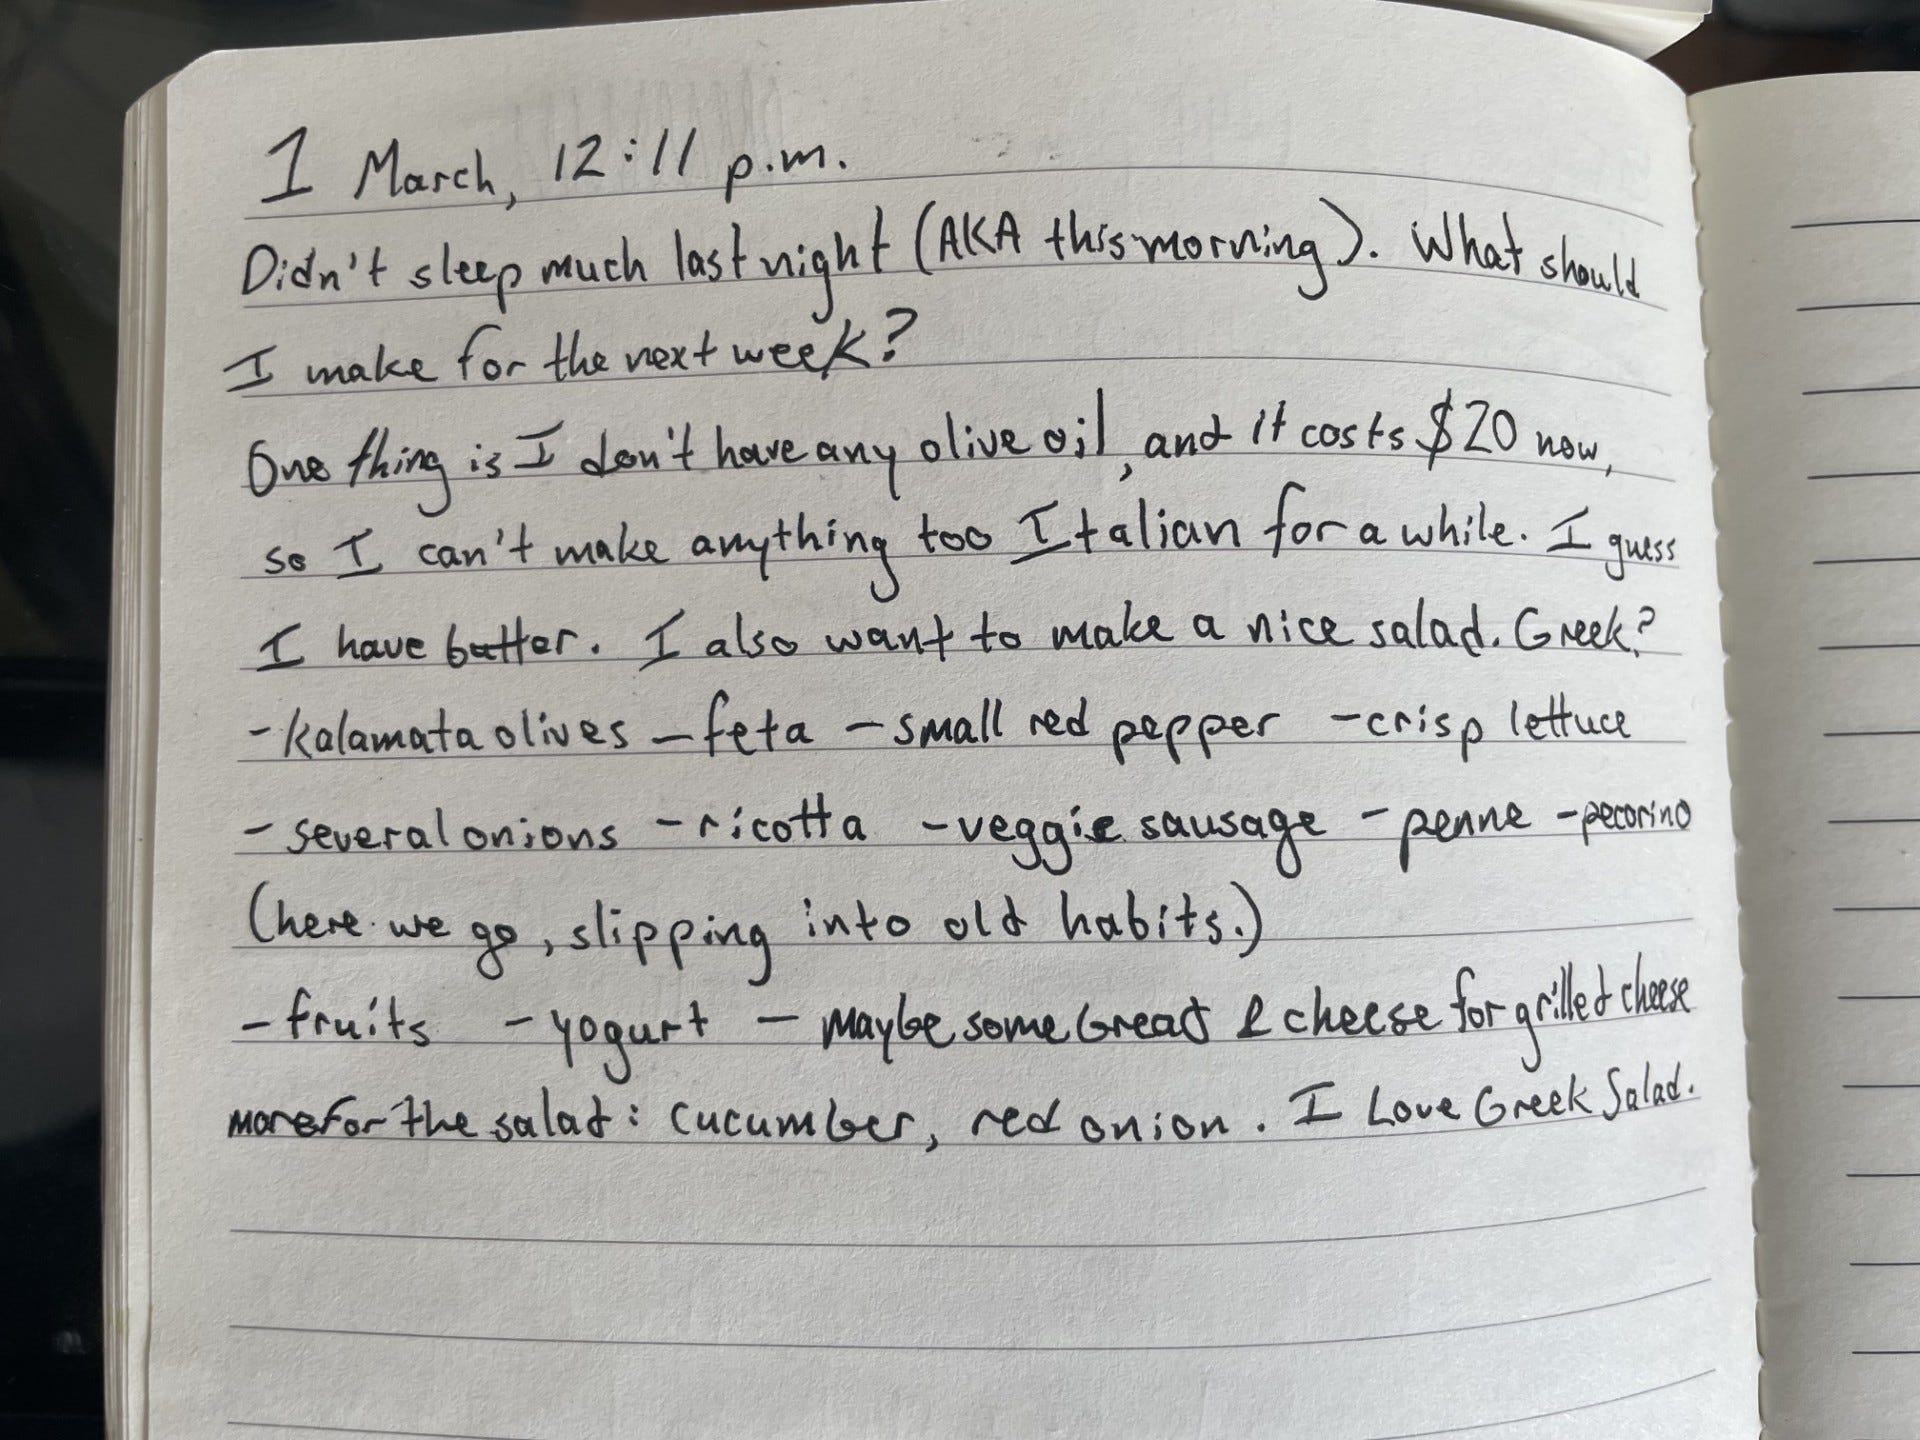 1 March, 12:11 p.m.
Didn't sleep much last night (AKA this morning). What should
I make for the next week?
One thing is I don't have any olive oil, and it costs $20 now,
so I can't make anything too Italian for a while. I guess
I have butter. I also want to make a nice salad. Greek?
- kalamata olives - feta - small red pepper - crisp lettuce
- several onions - ricotta - veggie sausage - penne - pecorino
(here we go, slipping into old habits.)
- fruits - yogurt - Maybe some bread & cheese for grilled cheese
more for the salad: cucumber, red onion. I Love Greek Salad.